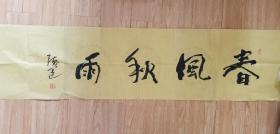 春風秋雨